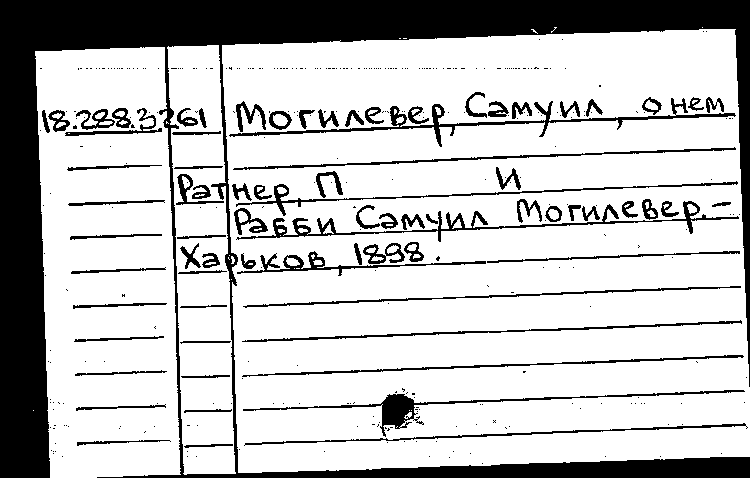 18.288.3261 Могилевер, Самуил, о нем
Ратнер, П И
Рабби Самуил Могилевер.-
Харьков, 1898.